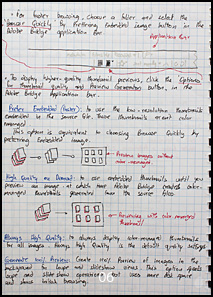 • For faster browsing, choose a folder and select the
Browse Quickly By Preferring Embedded Image button in the
Adobe Bridge application bar.
Application Bar
• To display higher-quality thumbnail previews, click the Options
for Thumbnail Quality and Preview Generation button, in the
Adobe Bridge Application Bar.
Prefer Embedded (Faster): to use the low-resolution thumbnails
embedded in the source file. These thumbnails aren't color
managed.
This option is equivalent to choosing Browser Quickly by
preferring Embedded Image.
Preview images without
color managed
High Quality on Demand: to use embedded thumbnails until you
preview an image, at which time Adobe Bridge creates color-
managed thumbnails generated from the source files.
Previewing with color managed
thumbnail
Always High Quality: to always display color-managed thumbnails
for all images. Always High Quality is the default quality settings
Generate 100% Previews: Creates 100% Previews of images in the
background for loupe and slideshow views. This option speeds
loupe and slide show operations but uses more disk space
and slows initial browsing.